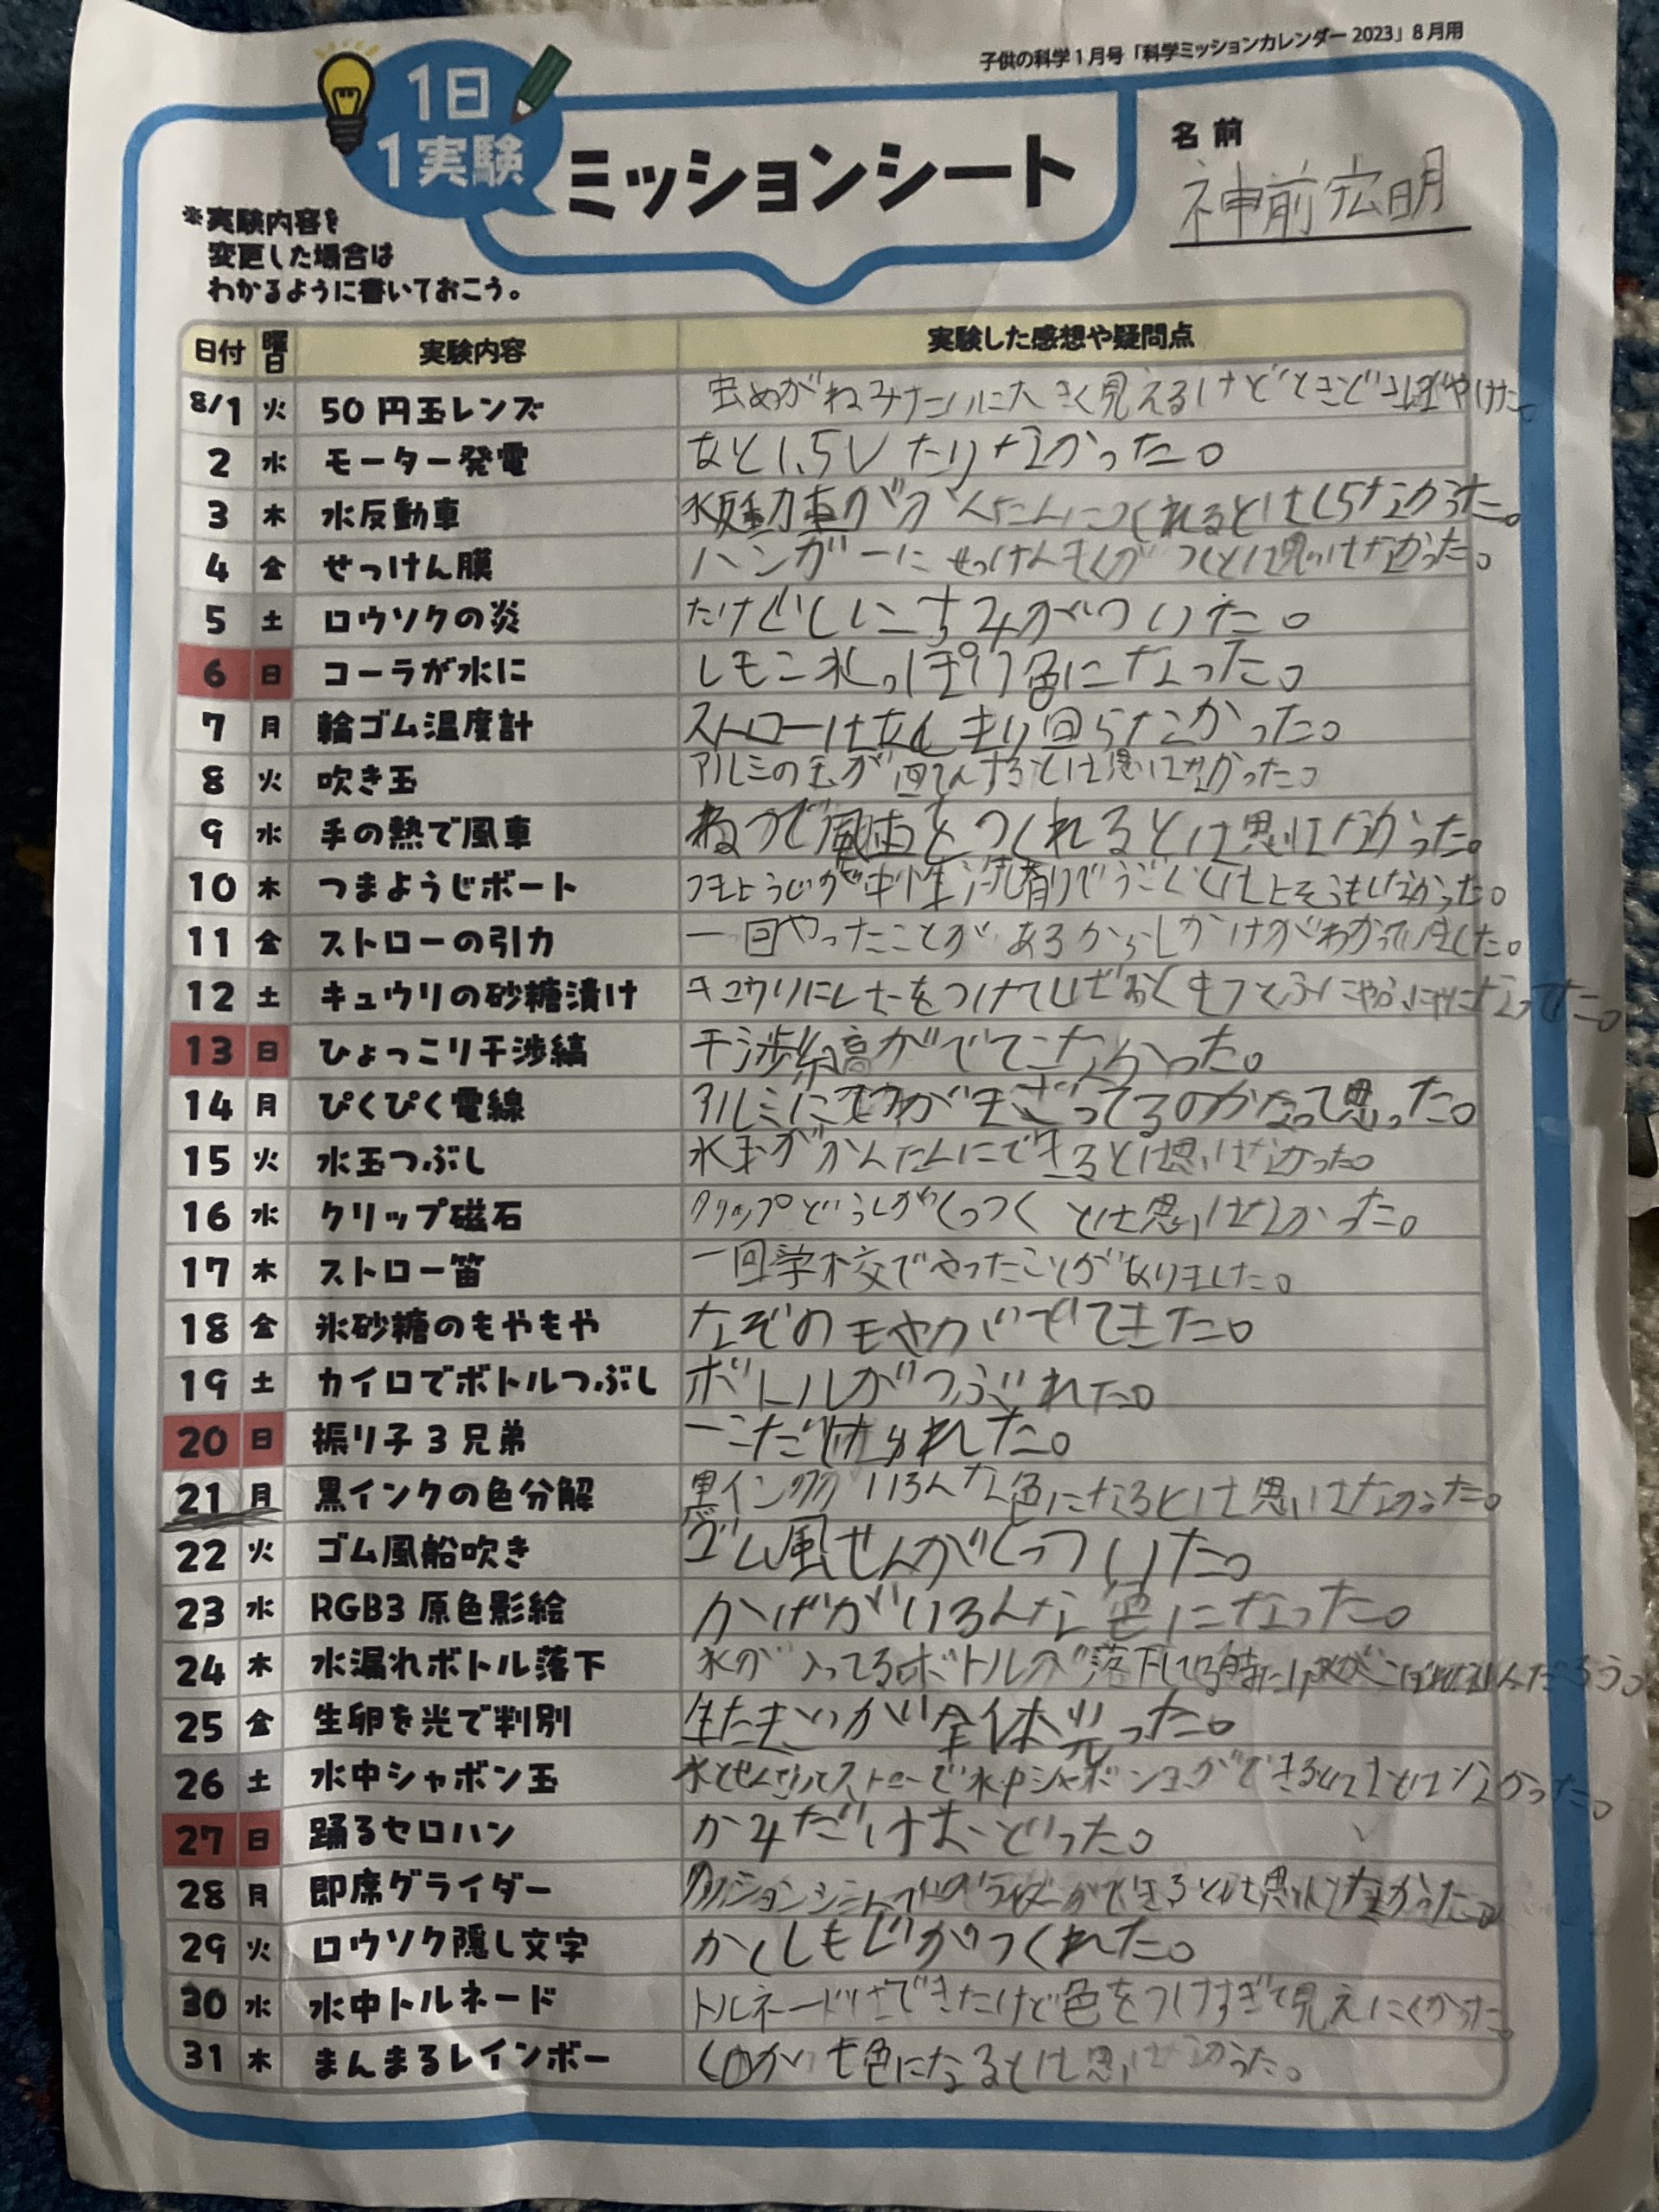 子供の科学1月号「科学ミッションカレンダー2023」8月用
1日
1実験
ミッションシート
名前
神前宏明
※実験内容を
変更した場合は
わかるように書いておこう。
日付 曜日 実験内容 実験した感想や疑問点
8/1 火 50円玉レンズ 虫めがねみたいに大きく見えるけどときどきぼやけた。
2 水 モーター発電 あと1.5Vたりなかった。
3 木 水反動車 水反動車がかんたんにつくれるとはしらなかった。
4 金 せっけん膜 ハンガーにせっけんまくがつくとは思はなかった。
5 土 ロウソクの炎 たけぐしにこちみがついた。
6 日 コーラが水に レモン水っぽい色になった。
7 月 輪ゴム温度計 ストローはあんまり回らなかった。
8 火 吹き玉 アルミの玉が回てんするとは思はなかった。
9 水 手の熱で風車 ねつで風車をつくれるとは思はなかった。
10 木 つまようじボート つまようじが中性洗ざいでうごくとはそうもしなかった。
11 金 ストローの引力 一回やったことがあるからしかけがわかっていました。
12 土 キュウリの砂糖漬け キュウリにしおをつけて
13 日 ひょっこり干渉縞 干渉縞がでてこなかった。
14 月 ぴくぴく電線 アルミに
まざってるのかなって思った。
15 火 水玉つぶし 水玉がかんたんにできるとは思はなかった。
16 水 クリップ磁石 クリップどうしがくっつくとは思はなかった。
17 木 ストロー笛 一回学校でやったことがありました。
18 金 氷砂糖のもやもや なぞのモヤがでてきた。
19 土 カイロでボトルつぶし ボトルがつぶれた。
20 日 振り子3兄弟 一こだけゆれた。
21 月 黒インクの色分解 黒インクがいろんな色になるとは思はなかった。
22 火 ゴム風船吹き ゴム風せんがくっついた。
23 水 RGB3原色影絵 かげがいろんな色になった。
24 木 水漏れボトル落下 水が入ってるボトルが落下してる時に水が
だろう。
25 金 生卵を光で判別 生たまごが全体光った。
26 土 水中シャボン玉 水とせんざいとストローで水中シャボン玉ができるなんてしらなかった。
27 日 踊るセロハン かみだけおどった。
28 月 即席グライダー ミッションシートでグライダーができるとは思はなかった。
29 火 ロウソク隠し文字 かくしもじがつくれた。
30 水 水中トルネード トルネードはできたけど色をつけすぎて見えにくかった。
31 木 まんまるレインボー
色になるとは思はなかった。